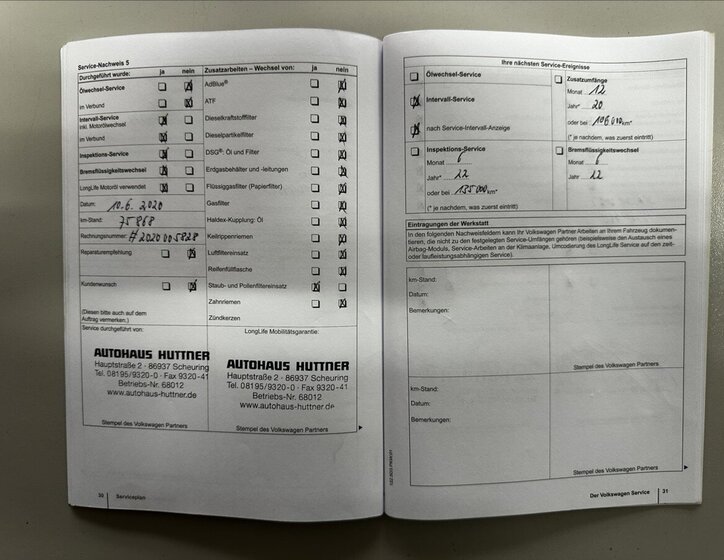 Service-Nachweis 5
Durchgeführt wurde: ja nein
Ölwechsel-Service
im Verbund
Intervall-Service
inkl. Motorölwechsel
im Verbund
Inspektions-Service
Bremsflüssigkeitswechsel
LongLife Motoröl verwendet
Datum: 10.6. 2020
km-Stand: 75868
Rechnungsnummer: #2020005828
Reparaturempfehlung
Kundenwunsch
(Diesen bitte auch auf dem
Auftrag vermerken:)
Service durchgeführt von:
AUTOHAUS HUTTNER
Hauptstraße 2 - 86937 Scheuring
Tel. 08195/9320-0 · Fax 9320-41
Betriebs-Nr. 68012
www.autohaus-huttner.de
Stempel des Volkswagen Partners
Zusatzarbeiten – Wechsel von: ja nein
AdBlue®
ATF
Dieselkraftstofffilter
Dieselpartikelfilter
DSG®: Öl und Filter
Erdgasbehälter und -leitungen
Flüssiggasfilter (Papierfilter)
Gasfilter
Haldex-Kupplung: Öl
Keilrippenriemen
Luftfiltereinsatz
Reifenfüllflasche
Staub- und Pollenfiltereinsatz
Zahnriemen
Zündkerzen
LongLife Mobilitätsgarantie:
AUTOHAUS HUTTNER
Hauptstraße 2 - 86937 Scheuring
Tel. 08195/9320-0 · Fax 9320-41
Betriebs-Nr. 68012
www.autohaus-huttner.de
Stempel des Volkswagen Partners
30 Serviceplan
Ihre nächsten Service-Ereignisse
Ölwechsel-Service
Intervall-Service
nach Service-Intervall-Anzeige
Zusatzumfänge
Monat 12
Jahr* 20
oder bei 106000 km*
(* je nachdem, was zuerst eintritt)
Inspektions-Service
Monat 6
Jahr* 22
oder bei 135000 km*
(* je nachdem, was zuerst eintritt)
Bremsflüssigkeitswechsel
Monat 6
Jahr 22
Eintragungen der Werkstatt
In den folgenden Nachweisfeldern kann Ihr Volkswagen Partner Arbeiten an Ihrem Fahrzeug dokumen-
tieren, die nicht zu den festgelegten Service-Umfängen gehören (beispielsweise den Austausch eines
Airbag-Moduls, Service-Arbeiten an der Klimaanlage, Umcodierung des LongLife Service auf den zeit-
oder laufleistungsabhängigen Service).
km-Stand:
Datum:
Bemerkungen:
Stempel des Volkswagen Partners
km-Stand:
Datum:
Bemerkungen:
Stempel des Volkswagen Partners
Der Volkswagen Service 31